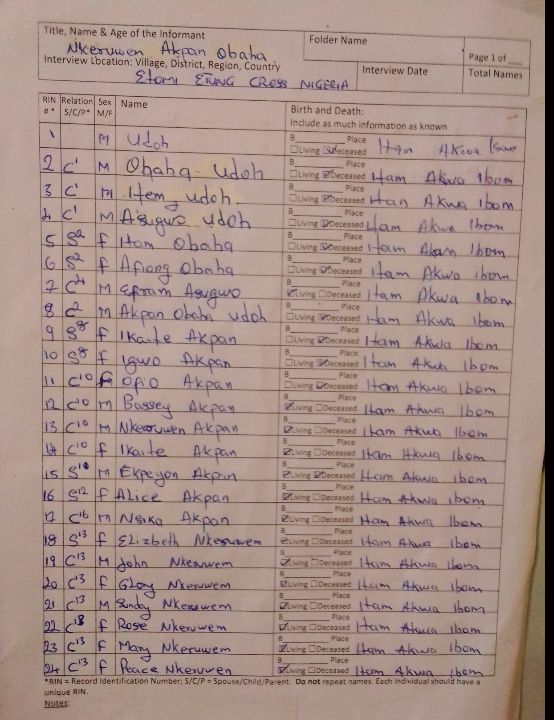 Title, Name & Age of the Informant
Folder Name
Page 1 of
Nkeruwen Akpan Obaha
Interview Location: Village, District, Region, Country
Interview Date
Total Names
Etomi Etung Cross Nigeria
RIN #* Relation S/C/P* Sex M/F Name Birth and Death: Include as much information as known
1 M Udoh B Place Living Deceased Itam Akwa Ibom
2 C1 M Obaha Udoh B Place Living Deceased Itam Akwa Ibom
3 C1 M Item Udoh B Place Living Deceased Itam Akwa Ibom
4 C1 M Asuguo Udoh B Place Living Deceased Itam Akwa Ibom
5 S2 f Itam Obaha B Place Living Deceased Itam Akwa Ibom
6 S2 f Afiong Obaha B Place Living Deceased Itam Akwa Ibom
7 C4 M Efram Asuguo B Place Living Deceased Itam Akwa Ibom
8 C2 M Akpan Obaha Udoh B Place Living Deceased Itam Akwa Ibom
9 S8 f Ikaite Akpan B Place Living Deceased Itam Akwa Ibom
10 S8 f Igwo Akpan B Place Living Deceased Itam Akwa Ibom
11 C10 f Ofio Akpan B Place Living Deceased Itam Akwa Ibom
12 C10 M Bassey Akpan B Place Living Deceased Itam Akwa Ibom
13 C10 M Nkeruwen Akpan B Place Living Deceased Itam Akwa Ibom
14 C10 f Ikaite Akpan B Place Living Deceased Itam Akwa Ibom
15 M Ekpeyon Akpan B Place Living Deceased Itam Akwa Ibom
16 S12 f Alice Akpan B Place Living Deceased Itam Akwa Ibom
17 C16 M Nsika Akpan B Place Living Deceased Itam Akwa Ibom
18 S13 f Elizbeth Nkeruwem B Place Living Deceased Itam Akwa Ibom
19 C13 M John Nkeruwem B Place Living Deceased Itam Akwa Ibom
20 C13 f Glory Nkeruwem B Place Living Deceased Itam Akwa Ibom
21 C13 M Sunday Nkeruwem B Place Living Deceased Itam Akwa Ibom
22 C18 f Rose Nkeruwem B Place Living Deceased Itam Akwa Ibom
23 C13 f Mary Nkeruwem B Place Living Deceased Itam Akwa Ibom
24 C13 f Peace Nkeruwen B Place Living Deceased Itam Akwa Ibom
*RIN = Record Identification Number; S/C/P = Spouse/Child/Parent. Do not repeat names. Each individual should have a
unique RIN.
Notes: